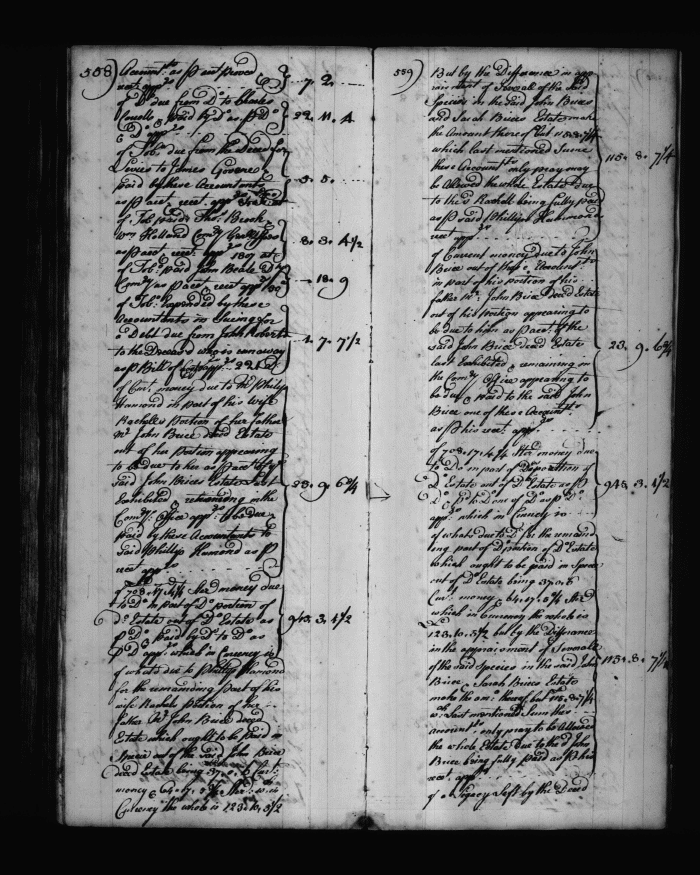 558) Accomts. as p acct proved
rect. appr.s } 7. 2
of Do. due from Do. to Charles
paid by Do. as p Do } 22. 11. 4
& Do. appr.
of Tob.o due from the Deced for
Levies to James
paid by these Accountants } 5. 5.
as p acct. rect. appr.
of Tob.o paid Thos. Brook
Wm Holland } 8. 3. 4 1/2
as p acct. rect. appr.
of Tob.o paid John Beale Dty
Comry as p acct. rect appr. } 18. 9
of Tob.o Expended by these
Accountants in Sueing for
a Debt due from Roberts } 1. 7. 7 1/2
to the Deceased who is runaway
as p Bill of
of Curt. money due to Mr. Philip
Hamond in part of his Wife
Rachells Portion of her father
Mr. John Brice deced Estate
out of her Portion appearing
to be due to her as p acct of ye
said John Brices Estate Last } 23. 9. 6 3/4
Exhibited & remaining in the
Comry. Office appr. to be due
paid by these Accountants to
said Phillip Hamond as p
rect. appr.
of 703. 17. 4 1/4 Ster money due
to Do. in part of Do. portion of
Do. Estate out of Do. Estate as } 943. 3. 1 1/2
p Do. paid by Do. to Do. as
p Do. appr. which in Currency is
of whats due to Phillip Hamond
for the remainding part of his
wife Rachels portion of her
father Mr. John Brice deced
Estate which ought to be paid in
Specie out of the said John Brice
deced Estate being 37. 0. 8 Curt.
money & 64. 17. 5 3/4 Ster. w.ch in
Currency the whole is 123. 10. 3 1/2
559) But by the Difference in app
raisment of Severall of the said
Species in the said John Brices
and Sarah Brices Estates make
the Amount thereof but 115. 8. 7 1/4
which last mentioned Sume
these Account.ts only pray may } 115. 8. 7 1/4
be Allowed the whole Estate due
to the sd Rachell being fully paid
as p said Phillip Hammonds
rect. appr.
of Current money due to John
Brice out of these Account
in part of his portion of his
father Mr. John Brice Deced Estate
out of his Portion appearing to
be due to him as p acct. of the
said John Brice deced Estate } 23. 9. 6 3/4
last Exhibited & remaining in
the Comry Office appearing to
be due & paid to the said John
Brice one of these Account.ts
as p his rect. appr.
of 703. 17. 4 1/4 Ster money due
to Do. in part of Do. portion of
Do. Estate out of Do. Estate as p } 943. 3. 1 1/2
Do. pd. to Do. one of Do. as p Do.
appr. which in Currency is
of whats due to Do. for the remaind
ing part of Do. portion of Do. Estate
which ought to be paid in Specie
out of Do. Estate being 37. 0. 8
Curt. money & 64. 17. 5 3/4 Sterl
which in Currency the whole is
123. 10. 3 1/2 but by the Difference
in the appraisment of Severall
of the said Species in the said John } 115. 8. 7 1/4
Brice & Sarah Brices Estates
make the amt. thereof but 115. 8. 7 1/4
wch. last mentioned Sum these
amount.ts only pray to be Allowed
the whole Estate due to the sd John
Brice being fully paid as p his
rect. appr.
of a Legacy Left by the Deced